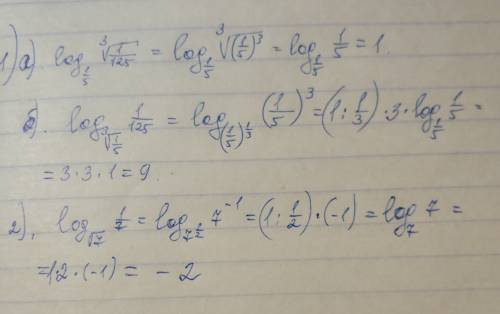 1) а) log_{1/5} ∛(1/125) = log_{1/5} ∛((1/5)^3) = log_{1/5} 1/5 = 1.
б). log_{∛(1/5)} 1/125 = log_{(1/5)^{1/3}} (1/5)^3 = (1 : 1/3) · 3 · log_{1/5} 1/5 =
= 3 · 3 · 1 = 9.
2), log_{√7} 1/7 = log_{7^{1/2}} 7^{-1} = (1 : 1/2) · (-1) = log_7 7 =
= 1 · 2 · (-1) = - 2